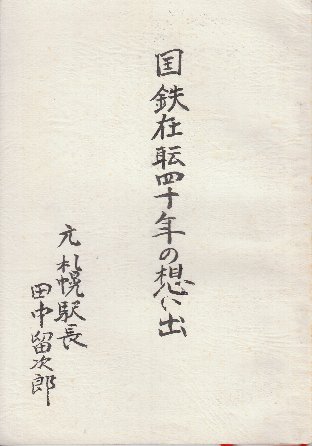 国鉄在転四十年の想い出
元札幌駅長
田中留次郎